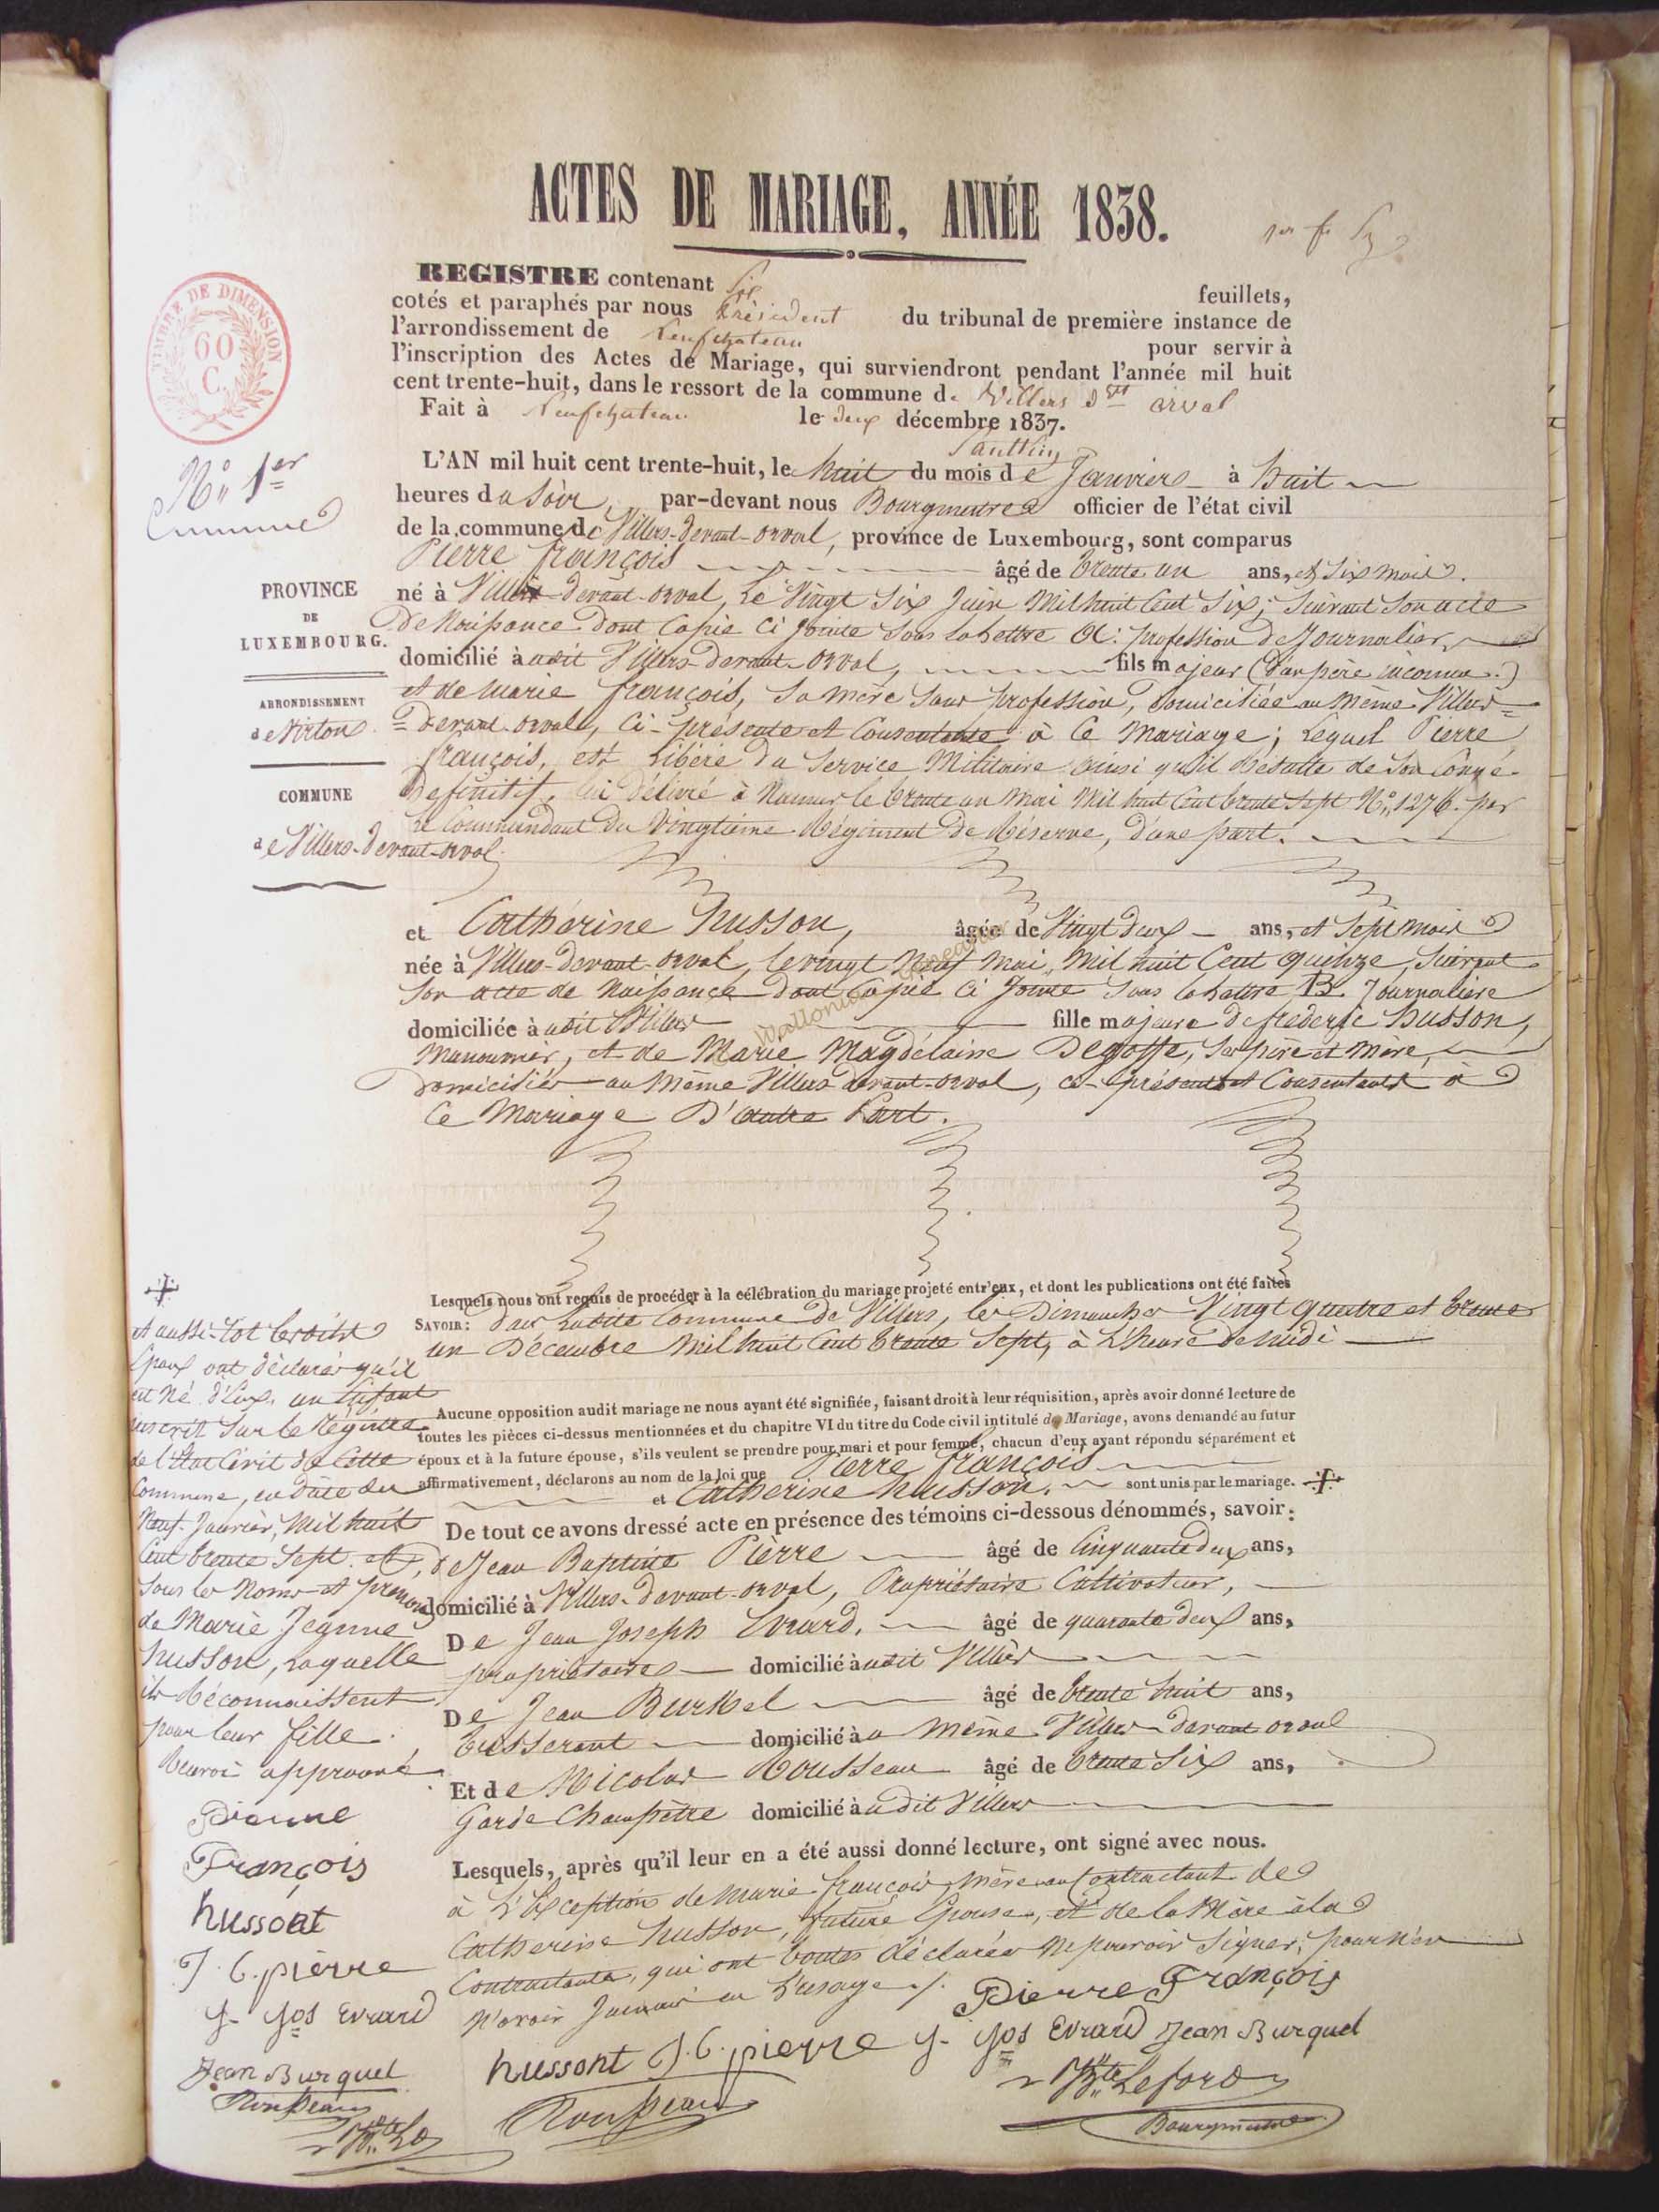 ACTES DE MARIAGE, ANNÉE 1838.
REGISTRE contenant six feuillets,
cotés et paraphés par nous Président du tribunal de première instance de
l'arrondissement de Neufchateau pour servir à
l'inscription des Actes de Mariage, qui surviendront pendant l'année mil huit
cent trente-huit, dans le ressort de la commune d. Villers dvt orval
Fait à Neufchateau le deux décembre 1837.
TIMBRE DE DIMENSION
60
C.
N° 1er
PROVINCE
DE
LUXEMBOURG.
ARRONDISSEMENT
de Virton
COMMUNE
de Villers-devant-orval
L'AN mil huit cent trente-huit, le huit du mois de Janvier à huit
heures du Soir, par-devant nous Bourgmestre officier de l'état civil
de la commune de Villers-devant-orval, province de Luxembourg, sont comparus
Pierre françois âgé de trente un ans, et Six mois.
né à Villers-devant-orval, Le Vingt Six Juin Mil huit Cent Six, Suivant Son acte
De Naissance dont Copie Ci Jointe Sous La Lettre A: profession de Journalier,
domicilié audit Villers-devant-orval, fils majeur (d'un père inconnu.)
et de Marie françois, Sa mère Sans profession, Domiciliée au Même Villers=
=devant-orval, Ci-présente et Consentante à Ce Mariage; Lequel Pierre
françois, est Libéré du Service Militaire ainsi qu'il Résulte de Son Congé
Définitif, lui délivré à Namur le trente un Mai Mil huit Cent trente Sept N° 1276. par
Le Commandant du Vingtième Régiment De Réserve, d'une part.
et Cathérine husson, âgée de Vingt deux ans, et Sept mois
née à Villers-devant-orval, le vingt Neuf Mai, Mil huit Cent quinze, Suivant
Son acte de Naissance dont Copie Ci Jointe Sous la Lettre B. Journalière
domiciliée audit Villers fille majeure de frederic husson,
Manouvrier, et de Marie Magdelaine Degoffe, Ses père et mère,
Domiciliés au Même Villers-devant-orval, ci-présents et Consentants à
Ce Mariage D'autre Part.
Lesquels nous ont requis de procéder à la célébration du mariage projeté entr'eux, et dont les publications ont été faites
SAVOIR: Dans Ladite Commune de Villers, les Dimanches Vingt quatre et trente
un Décembre Mil huit Cent trente Sept, à L'heure de Midi
Aucune opposition audit mariage ne nous ayant été signifiée, faisant droit à leur réquisition, après avoir donné lecture de
toutes les pièces ci-dessus mentionnées et du chapitre VI du titre du Code civil intitulé du Mariage, avons demandé au futur
époux et à la future épouse, s'ils veulent se prendre pour mari et pour femme, chacun d'eux ayant répondu séparément et
affirmativement, déclarons au nom de la loi que Pierre françois
et Catherine husson, sont unis par le mariage.
De tout ce avons dressé acte en présence des témoins ci-dessous dénommés, savoir:
de Jean Baptiste Pièrre âgé de Cinquante deux ans,
domicilié à Villers-devant-orval, Propriétaire Cultivateur,
De Jean Joseph Evrard, âgé de quarante deux ans,
propriétaire domicilié audit Villers
De Jean Burkel âgé de trente huit ans,
tisserant domicilié au Même Villers-devant orval
Et de Nicolas Rousseau âgé de trente Six ans,
Garde Champêtre domicilié audit Villers
Lesquels, après qu'il leur en a été aussi donné lecture, ont signé avec nous.
à L'Exception de Marie françois, Mère au Contractant de
Catherine husson, future Epouse, et de la Mère à la
Contractante, qui ont toutes déclarées Ne pouvoir Signer, pour N'en
N'avoir Jamais eu L'usage
Pierre François
hussont J. b. pierre J- Jos Evrard Jean Burquel
Rousseau
Bourgmestre
et aussi-tot lesdits
Epoux ont déclarés qu'il
est Né d'Eux, un Enfant
inscrit Sur le Régistre
de l'Etat Civil de Cette
Commune, en date du
Neuf Janvier, Mil huit
Cent trente Sept,
Sous les Noms et prenoms
de Marie Jeanne
husson, Laquelle
ils Réconnaissent
pour leur fille.
Renvoi approuvé
Pierre
François
hussont
J. b. pièrre
J- Jos Evrard
Jean Burquel
Rousseau